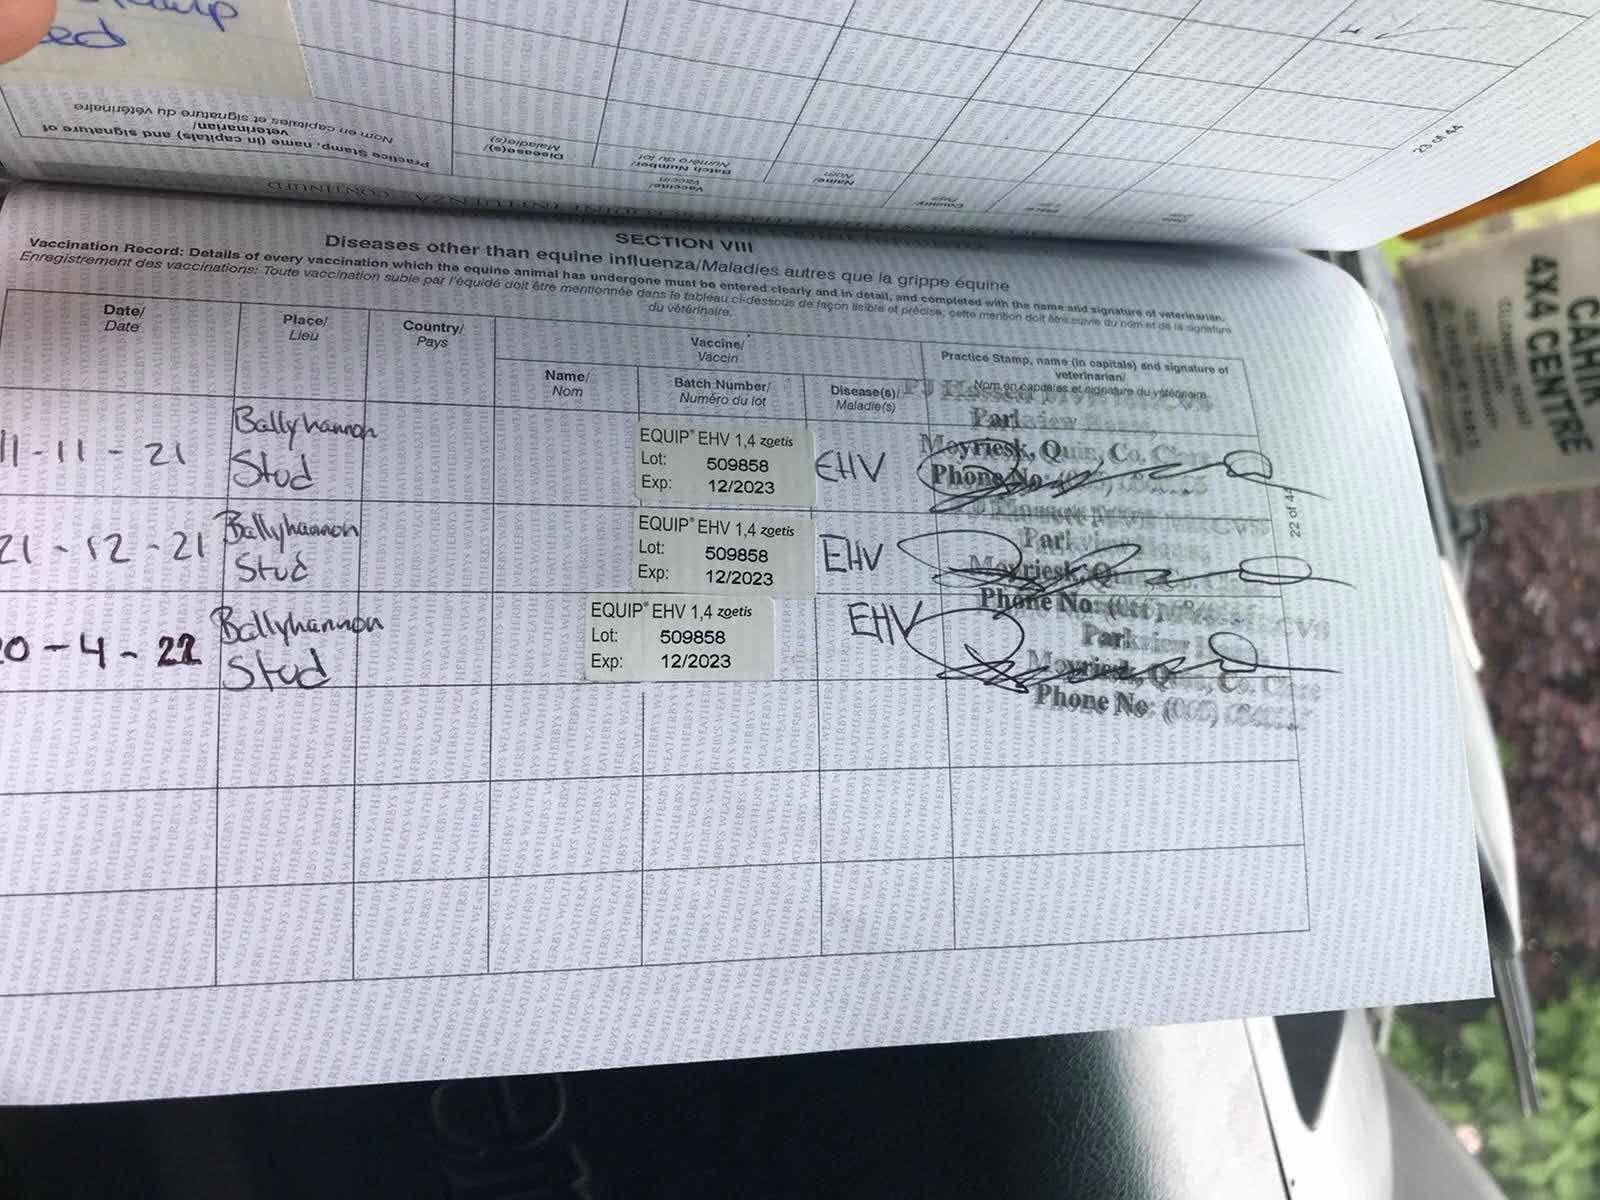 ed
Practice Stamp, name (in capitals) and signature of
veterinarian/
Nom en capitales et signature du vétérinaire
Disease(s)/
Maladie(s)
Vaccine/
Vaccin
Batch Number/
Numéro du lot
Name/
Nom
Country/
Pays
23 of 44
SECTION VIII
Diseases other than equine influenza/Maladies autres que la grippe équine
Vaccination Record: Details of every vaccination which the equine animal has undergone must be entered clearly and in detail, and completed with the name and signature of veterinarian.
Enregistrement des vaccinations: Toute vaccination subie par l'équidé doit être mentionnée dans le tableau ci-dessous de façon lisible et précise, cette mention doit être suivie du nom et de la signature
du vétérinaire.
Date/
Date
Place/
Lieu
Country/
Pays
Vaccine/
Vaccin
Name/
Nom
Batch Number/
Numéro du lot
Disease(s)/
Maladie(s)
Practice Stamp, name (in capitals) and signature of
veterinarian/
Nom en capitales et signature du vétérinaire
11-11-21
Ballyhannon
Stud
EQUIP® EHV 1,4 zoetis
Lot: 509858
Exp: 12/2023
EHV
Parkview
Moyriesk, Quin, Co. Clare
Phone No:
21-12-21
Ballyhannon
Stud
EQUIP® EHV 1,4 zoetis
Lot: 509858
Exp: 12/2023
EHV
Parkview
Moyriesk, Quin,
Phone No:
20-4-22
Ballyhannon
Stud
EQUIP® EHV 1,4 zoetis
Lot: 509858
Exp: 12/2023
EHV
Parkview
Moyriesk, Quin, Co. Clare
Phone No: (065)
22 of 44
CAHIR
4X4 CENTRE